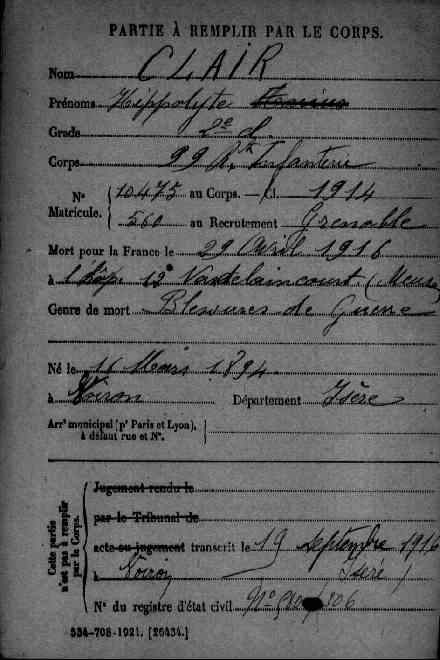 PARTIE À REMPLIR PAR LE CORPS.
Nom CLAIR
Prénoms Hippolyte
Grade 2e cl.
Corps 99 Rt Infanterie
N° Matricule. 10475 au Corps. — Cl. 1914
560 au Recrutement Grenoble
Mort pour la France le 29 Avril 1916
à l'hôp. 12e Vadelaincourt (Meuse)
Genre de mort Blessures de Guerre
Né le 16 Mars 1894
à Voiron Département Isère
Arrt municipal (pr Paris et Lyon), à défaut rue et N°.
Cette partie n'est pas à remplir par le Corps.
Jugement rendu le
par le Tribunal de
acte ou jugement transcrit le 19 Septembre 1916
à Voiron Isère
N° du registre d'état civil N°
534-708-1921. [26434.]